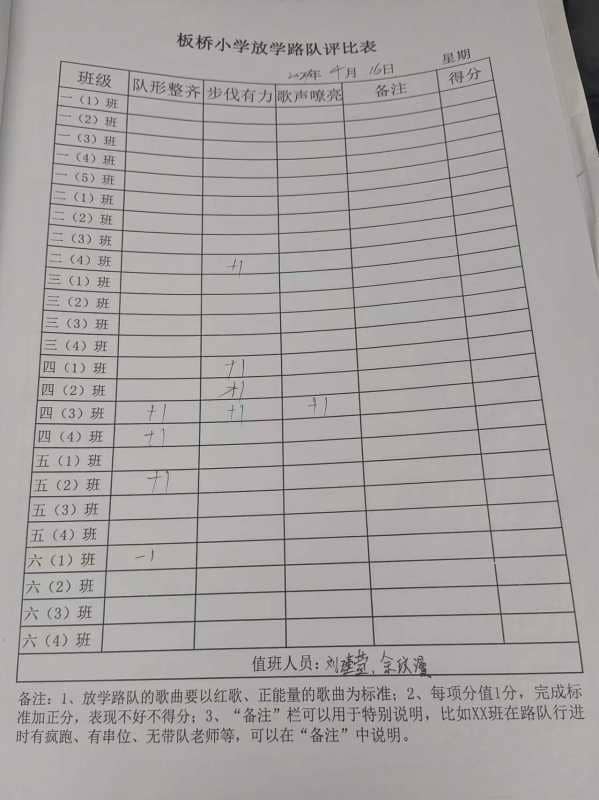 板桥小学放学路队评比表
年 4月 16日 星期
班级 队形整齐 步伐有力 歌声嘹亮 备注 得分
一（1）班
一（2）班
一（3）班
一（4）班
一（5）班
二（1）班
二（2）班
二（3）班
二（4）班 +1
三（1）班
三（2）班
三（3）班
三（4）班
四（1）班 +1
四（2）班 +1
四（3）班 +1 +1 +1
四（4）班 +1
五（1）班
五（2）班 +1
五（3）班
五（4）班
六（1）班 -1
六（2）班
六（3）班
六（4）班
值班人员：
备注：1、放学路队的歌曲要以红歌、正能量的歌曲为标准；2、每项分值1分，完成标
准加正分，表现不好不得分；3、“备注”栏可以用于特别说明，比如XX班在路队行进
时有疯跑、有串位、无带队老师等，可以在“备注”中说明。